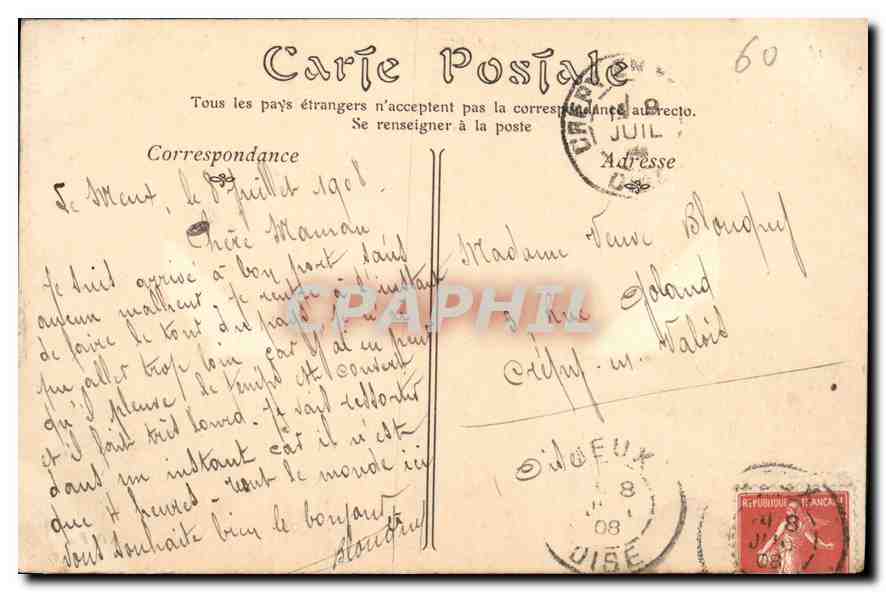 60
Carte Postale
Tous les pays étrangers n'acceptent pas la correspondance au recto.
Se renseigner à la poste
Correspondance
Adresse
Le Meux, le 8 Juillet 1908.
Chère Maman
Je suis arrivé à bon port sans
aucun malheur. Je rentre à l'instant
de faire le tour du pays. Je n'ai
pu aller trop loin car j'ai eu peur
qu'il pleuve. Le temps est couvert
et il fait très lourd. Je vais ressortir
dans un instant car il n'est
que 4 heures. Tout le monde ici
vous souhaite bien le bonjour
Madame Veuve
3 Rue
Crépy-en-Valois
Oise
CPAPHIL
CRÉPY-EN
8
JUIL
MEUX
8
08
OISE
RÉPUBLIQUE FRANÇAISE
8
08